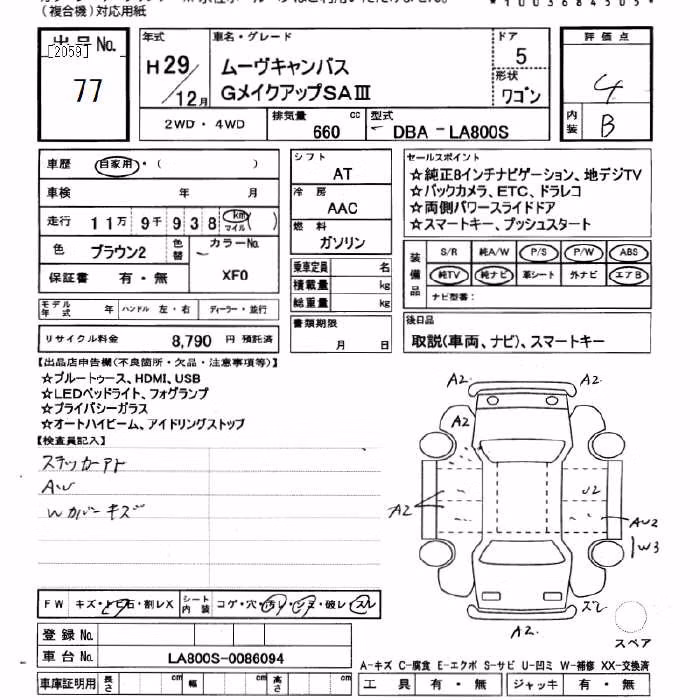 (複合機)対応用紙
*1003684505*
出品 No.
[2059]
77
年式
H29/12月
車名・グレード
ムーヴキャンバス
GメイクアップSAⅢ
ドア
5
形状
ワゴン
評価点
4
内装
B
2WD・4WD
排気量
660 cc
型式
DBA - LA800S
車歴 自家用・( )
車検 年 月
走行 11万 9千 938 km マイル ( )
色 ブラウン2
色替
カラーNo.
XF0
保証書 有・無
モデル年式 年 ハンドル 左・右 ディーラー・並行
リサイクル料金 8,790 円 預託済
シフト
AT
冷房
AAC
燃料
ガソリン
乗車定員 名
積載量 kg
総重量 kg
書類期限
月 日
セールスポイント
☆純正8インチナビゲーション、地デジTV
☆バックカメラ、ETC、ドラレコ
☆両側パワースライドドア
☆スマートキー、プッシュスタート
装備品
S/R 純A/W P/S P/W ABS
純TV 純ナビ 革シート 外ナビ エアB
ナビ型番:
後日品
取説(車両、ナビ)、スマートキー
【出品店申告欄(不良箇所・欠品・注意事項等)】
☆ブルートゥース、HDMI、USB
☆LEDヘッドライト、フォグランプ
☆プライバシーガラス
☆オートハイビーム、アイドリングストップ
【検査員記入】
ステッカーアト
AW
Wカバーキズ
A2
A2
A2
A2
U2
AU2
W3
ズレ
A2
スペア
FW キズ・トビ石・割レX
シート内装 コゲ・穴・汚レ・シミ・破レ・スレ
登録 No.
車台 No. LA800S-0086094
車庫証明用 長さ cm 幅 cm 高さ cm
A-キズ C-腐食 E-エクボ S-サビ U-凹ミ W-補修 XX-交換済
工具 有・無 ジャッキ 有・無